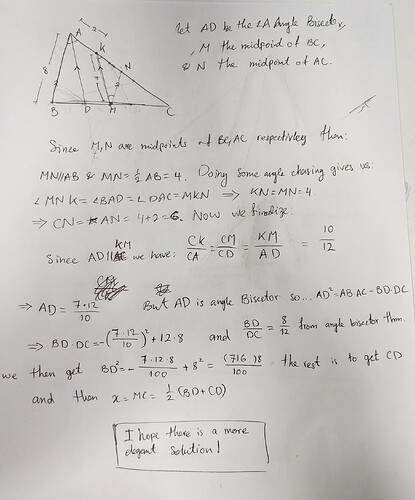 Let AD be the ∠A Angle Bisector,
, M the midpoid of BC,
& N the midpoint of AC.
A
2
K
8
7
N
B
D
M
C
Since M,N are midpoints of BC, AC respectivley then:
MN//AB & MN = 1/2 AB = 4. Doing some angle chasing gives us:
∠MNK = ∠BAD = ∠DAC = MKN ⇒ KN = MN = 4
⇒ CN = AN = 4+2 = 6. Now we finalize:
Since AD//KM we have: CK/CA = CM/CD = KM/AD = 10/12
⇒ AD = 7·12/10 But AD is angle Bisector so... AD² = AB·AC - BD·DC
⇒ BD·DC = -(7·12/10)² + 12·8 and BD/DC = 8/12 from angle bisector thm.
we then get BD² = -7·12·8/100 + 8² = (716)8/100 the rest is to get CD
and then x = MC = 1/2 (BD+CD)
I hope there is a more
elegant solution!